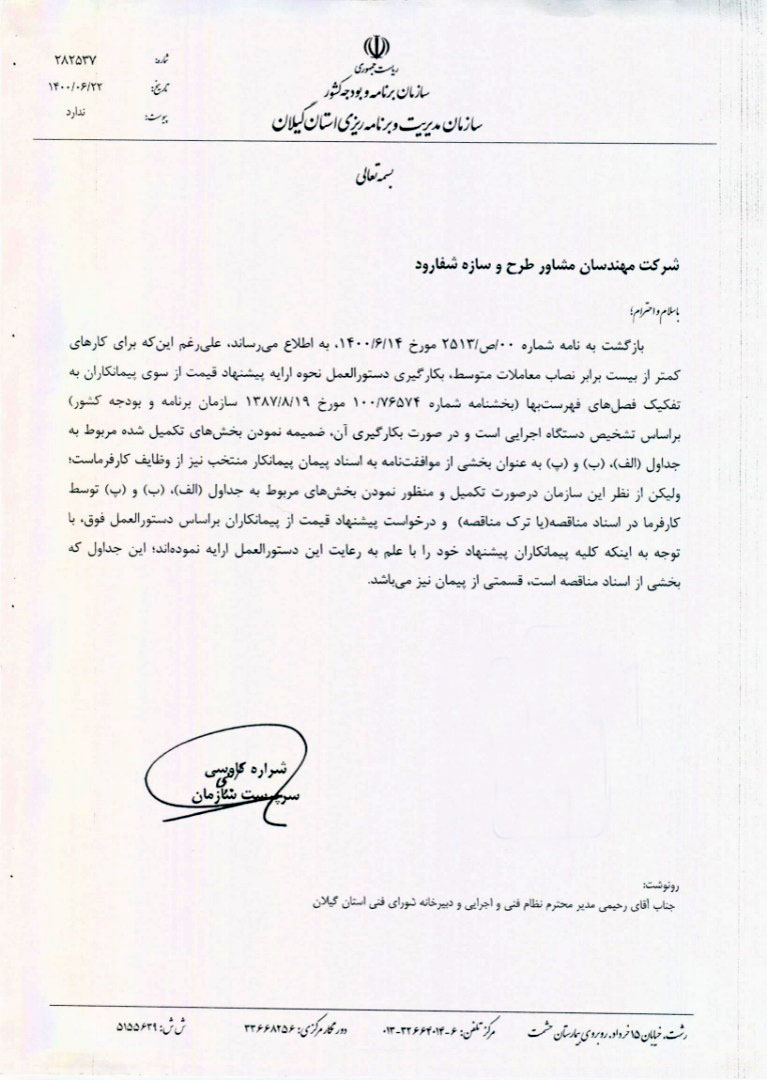 ریاست جمهوری
سازمان برنامه و بودجه کشور
سازمان مدیریت و برنامه ریزی استان گیلان
شماره: ۲۸۲۵۳۷
تاریخ: ۱۴۰۰/۰۶/۲۲
پیوست: ندارد
بسمه تعالی
شرکت مهندسان مشاور طرح و سازه شفارود
باسلام و احترام؛
بازگشت به نامه شماره ۰۰/ص/۲۵۱۳ مورخ ۱۴۰۰/۶/۱۴، به اطلاع می‌رساند، علی‌رغم این‌که برای کارهای
کمتر از بیست برابر نصاب معاملات متوسط، بکارگیری دستورالعمل نحوه ارایه پیشنهاد قیمت از سوی پیمانکاران به
تفکیک فصل‌های فهرست‌بها (بخشنامه شماره ۱۰۰/۷۶۵۷۴ مورخ ۱۳۸۷/۸/۱۹ سازمان برنامه و بودجه کشور)
براساس تشخیص دستگاه اجرایی است و در صورت بکارگیری آن، ضمیمه نمودن بخش‌های تکمیل شده مربوط به
جداول (الف)، (ب) و (پ) به عنوان بخشی از موافقت‌نامه به اسناد پیمان پیمانکار منتخب نیز از وظایف کارفرماست؛
ولیکن از نظر این سازمان درصورت تکمیل و منظور نمودن بخش‌های مربوط به جداول (الف)، (ب) و (پ) توسط
کارفرما در اسناد مناقصه(یا ترک مناقصه) و درخواست پیشنهاد قیمت از پیمانکاران براساس دستورالعمل فوق، با
توجه به اینکه کلیه پیمانکاران پیشنهاد خود را با علم به رعایت این دستورالعمل ارایه نموده‌اند؛ این جداول که
بخشی از اسناد مناقصه است، قسمتی از پیمان نیز می‌باشد.
شراره کاوسی
سرپرست سازمان
رونوشت:
جناب آقای رحیمی مدیر محترم نظام فنی و اجرایی و دبیرخانه شورای فنی استان گیلان
رشت، خیابان ۱۵ خرداد، روبروی بیمارستان حشمت مرکز تلفن: ۶-۳۲۶۶۴۰۱۴-۰۱۳ دورنگار مرکزی: ۳۳۶۶۸۲۵۶ ش ش: ۵۱۵۵۶۳۹